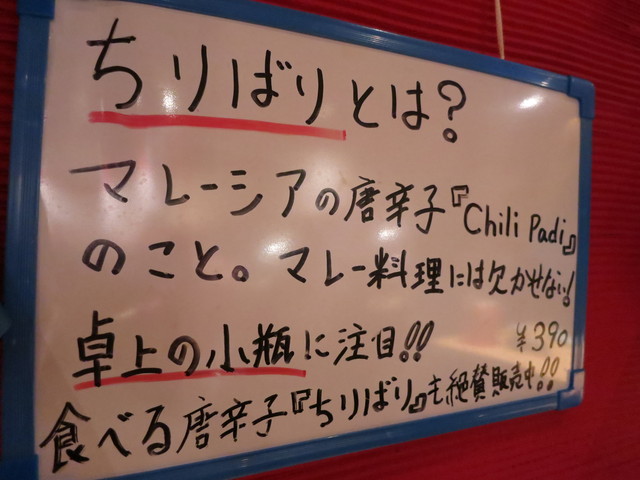 ちりばりとは?
マレーシアの唐辛子『Chili Padi』
のこと。マレー料理には欠かせない!
卓上の小瓶に注目!!
¥390
食べる唐辛子『ちりばり』も絶賛販売中!!